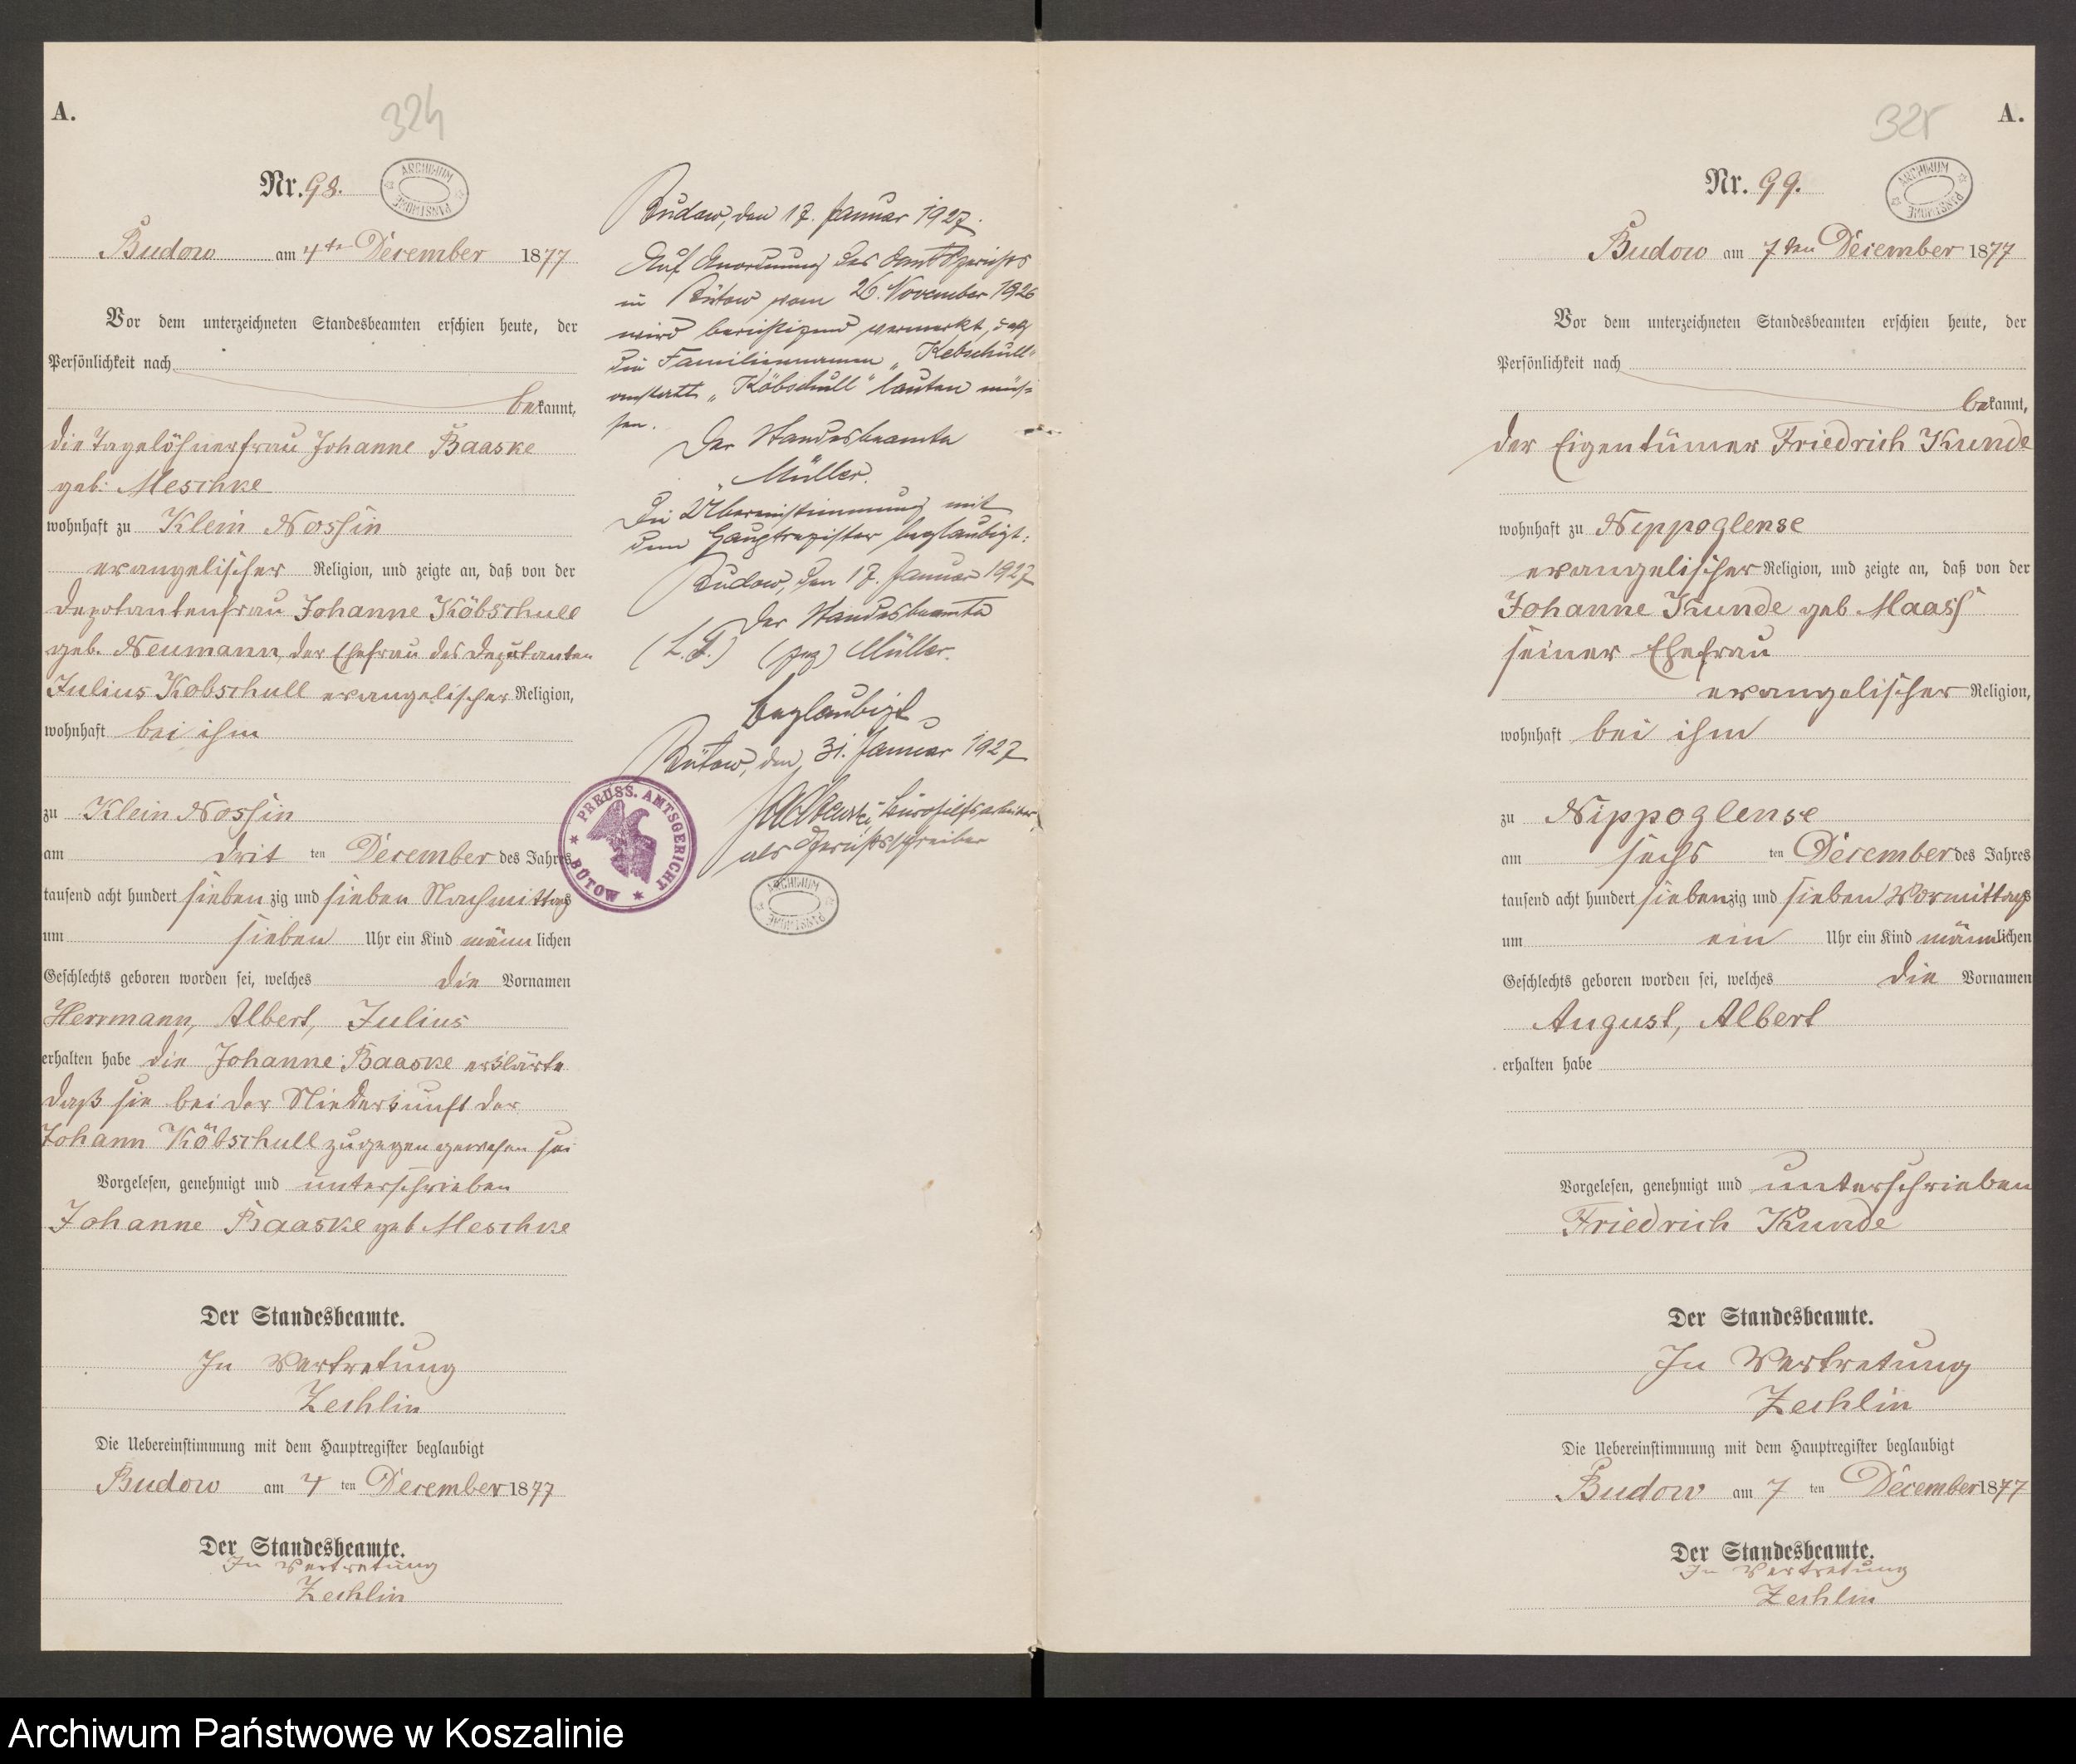 A.
324
Nr. 98.
ARCHIWUM PAŃSTWOWE
Budow am 4te December 1877
Vor dem unterzeichneten Standesbeamten erschien heute, der
Persönlichkeit nach
bekannt,
die Tagelöhnerfrau Johanne Baaske
geb. Meschke
wohnhaft zu Klein Nossin
evangelischer Religion, und zeigte an, daß von der
Deputantenfrau Johanne Köbschull
geb. Neumann, der Ehefrau des Deputanten
Julius Kobschull evangelischer Religion,
wohnhaft bei ihm
zu Klein Nossin
am drit ten December des Jahres
tausend acht hundert siebenzig und sieben Nachmittags
um sieben Uhr ein Kind männlichen
Geschlechts geboren worden sei, welches die Vornamen
Herrmann, Albert, Julius
erhalten habe die Johanne Baaske erklärte
daß sie bei der Niederkunft der
Johann Köbschull zugegen gewesen sei
Vorgelesen, genehmigt und unterschrieben
Johanne Baaske geb Meschke
Der Standesbeamte.
In Vertretung
Zechlin
Die Uebereinstimmung mit dem Hauptregister beglaubigt
Budow am 4 ten December 1877
Der Standesbeamte.
In Vertretung
Zechlin
Budow, den 17. Januar 1927.
Auf Anordnung des Amtsgerichts
in Bütow vom 26. November 1926
wird berichtigend vermerkt, daß
die Familiennamen „Kebschull"
anstatt „Köbschull" lauten müs-
sen.
Der Standesbeamte
Müller.
Die Übereinstimmung mit
dem Hauptregister beglaubigt:
Budow, den 17. Januar 1927
Der Standesbeamte
(L.S.) (gez) Müller.
Beglaubigt
Bütow, den 31. Januar 1927
Bürohilfsarbeiter
als Gerichtsschreiber
PREUSS. AMTSGERICHT
BÜTOW
ARCHIWUM PAŃSTWOWE
A.
325
Nr. 99.
ARCHIWUM PAŃSTWOWE
Budow am 7ten December 1877
Vor dem unterzeichneten Standesbeamten erschien heute, der
Persönlichkeit nach
bekannt,
der Eigentümer Friedrich Kunde
wohnhaft zu Nippoglense
evangelischer Religion, und zeigte an, daß von der
Johanne Kunde geb Maass
seiner Ehefrau
evangelischer Religion,
wohnhaft bei ihm
zu Nippoglense
am sechs ten December des Jahres
tausend acht hundert siebenzig und sieben Vormittags
um ein Uhr ein Kind männlichen
Geschlechts geboren worden sei, welches die Vornamen
August, Albert
erhalten habe
Vorgelesen, genehmigt und unterschrieben
Friedrich Kunde
Der Standesbeamte.
In Vertretung
Zechlin
Die Uebereinstimmung mit dem Hauptregister beglaubigt
Budow am 7 ten December 1877
Der Standesbeamte.
In Vertretung
Zechlin
Archiwum Państwowe w Koszalinie